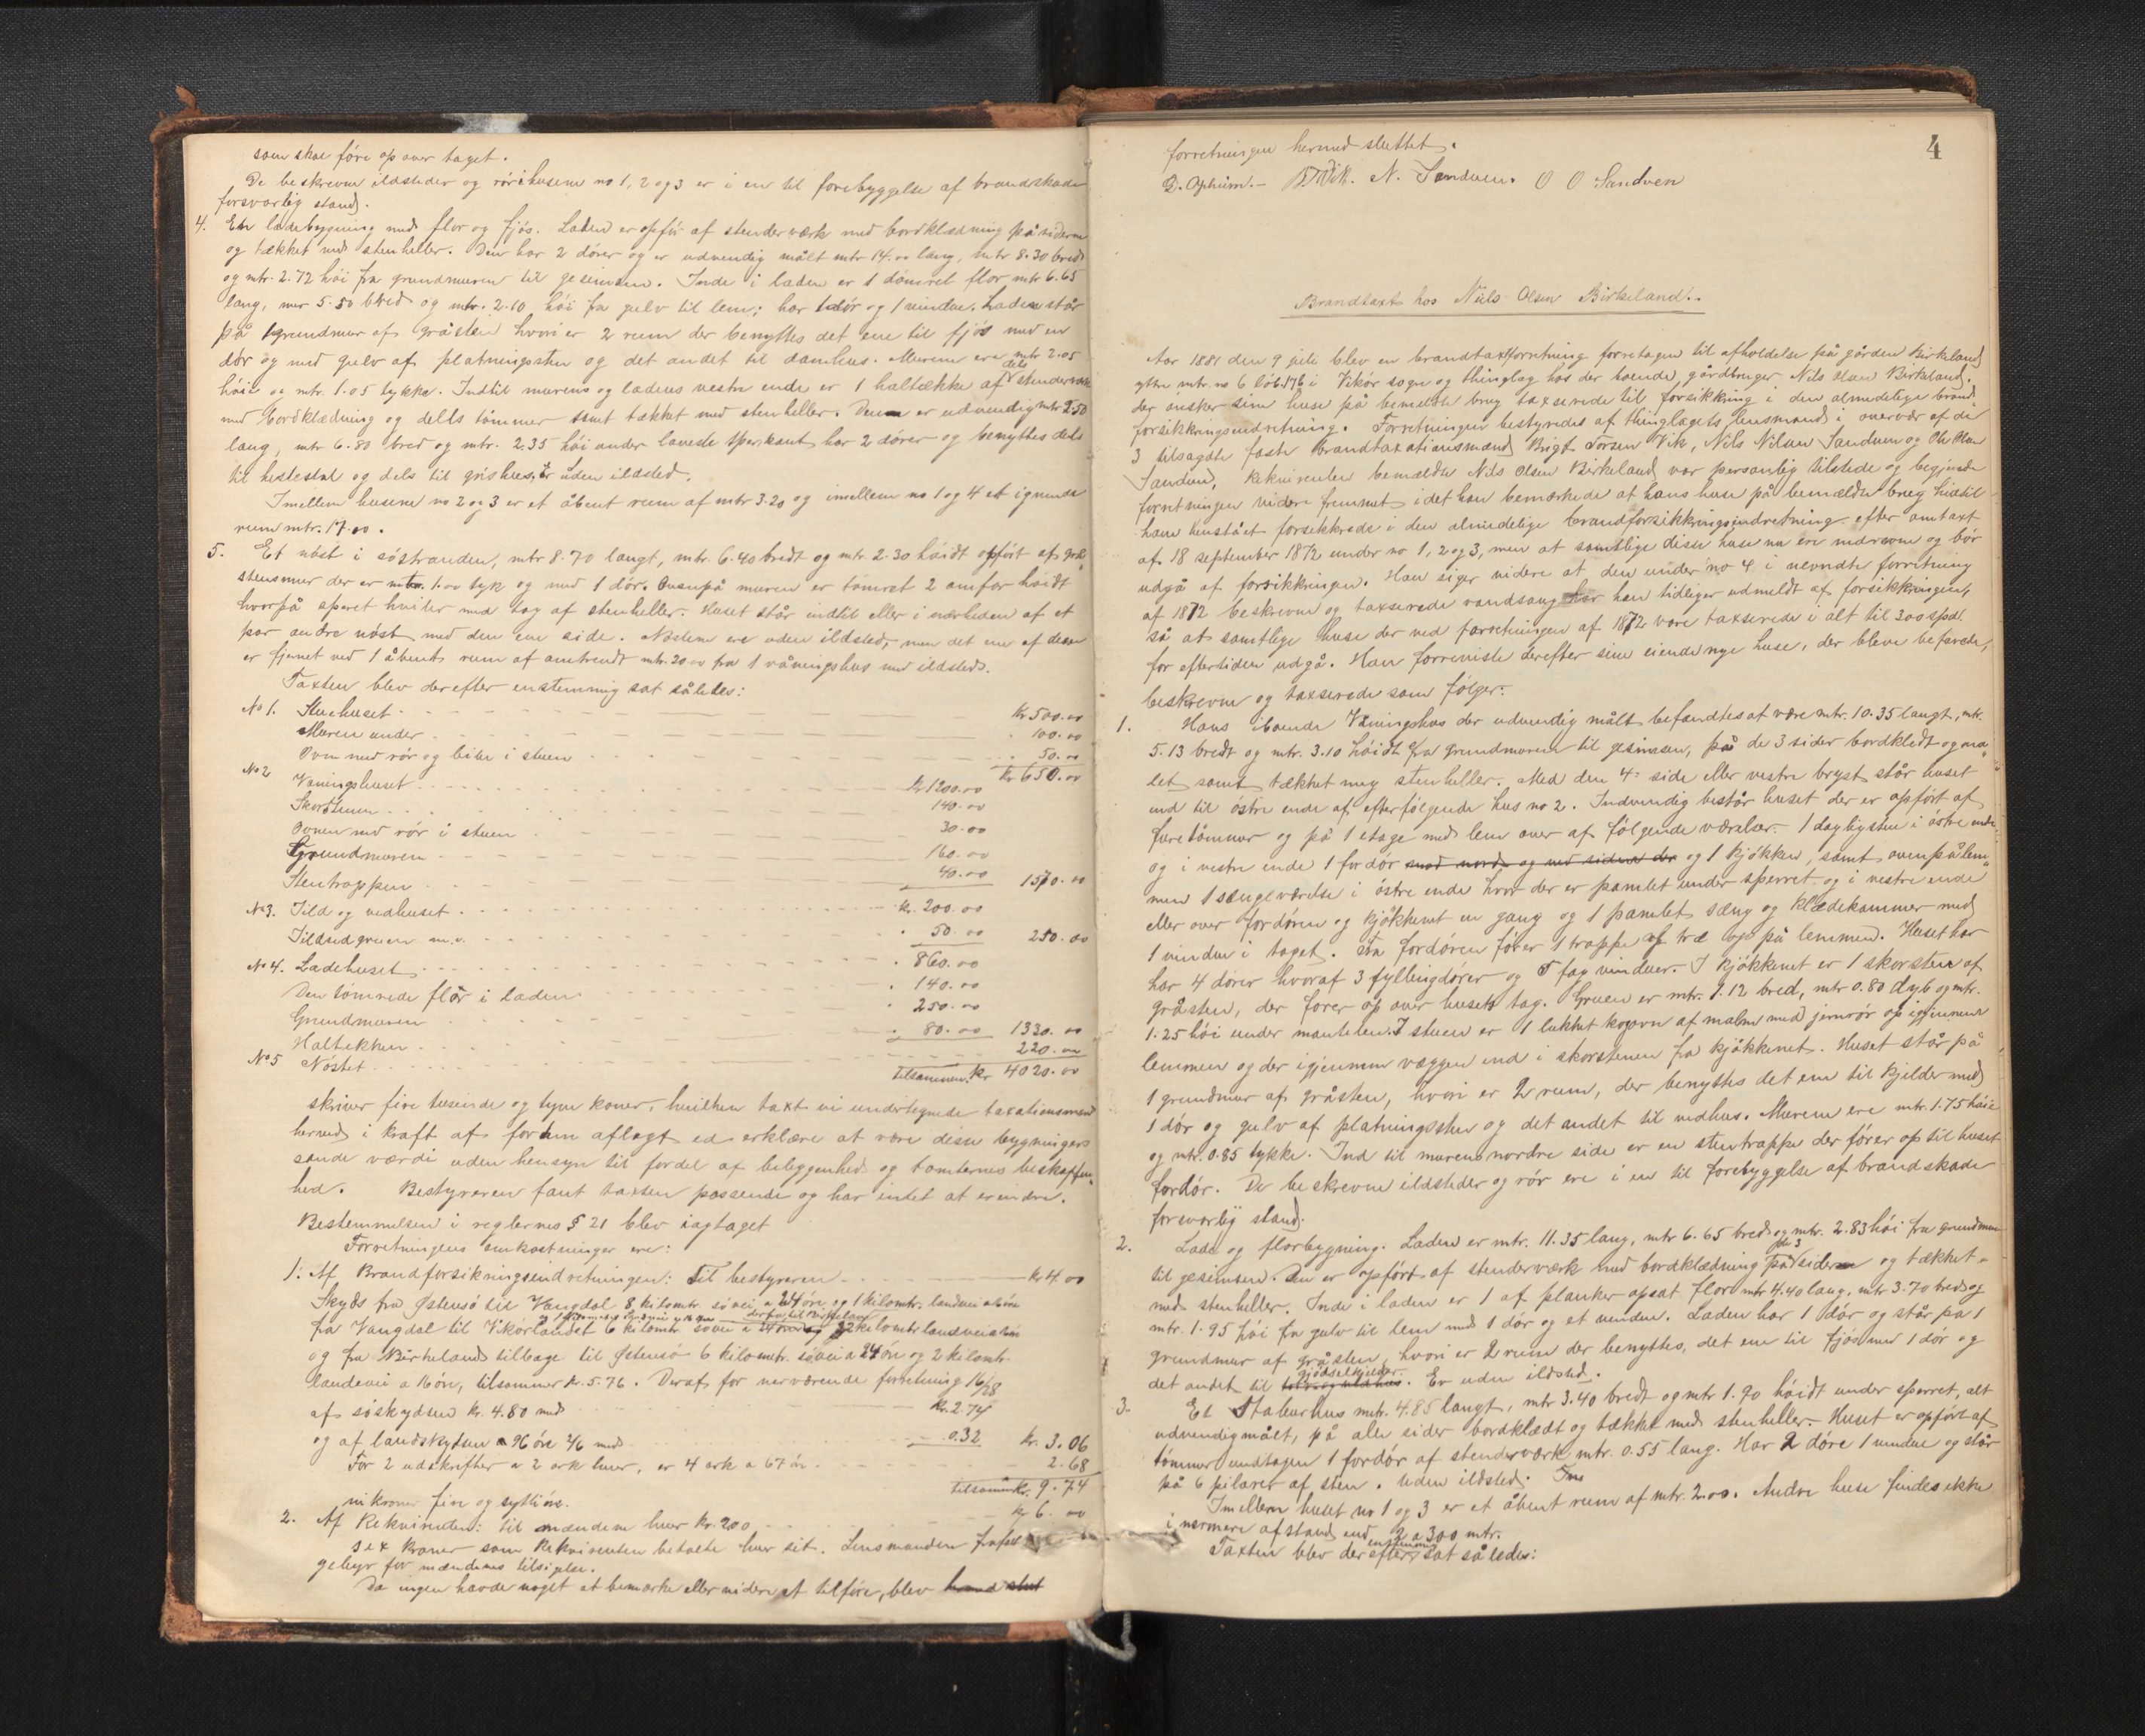 som skal føre op over taget.
De beskrevne ildsteder og rør i husene no 1, 2 og 3 er i en til forebyggelse af brandskade
forsvarlig stand.
4. En ladebygning med flor og fjøs. Laden er opfør af stenderværk med bordklædning på siderne
og tækket med stenheller. Den har 2 dører og er udvendig målt mtr 14.00 lang, mtr 8.30 bred
og mtr. 2.72 høi fra grundmuren til gesimsen. Inde i laden er 1 tømret flor mtr 6.65
lang, mtr 5.50 bred og mtr. 2.10 høi fra gulv til lem; har 1 dør og 1 vindue. Laden står
på 1 grundmur af gråsten hvori er 2 rum der benyttes det ene til fjøs med en
dør og med gulv af platningssten og det andet til tamhus. Murene ere mtr 2.05
høie og mtr. 1.05 tykke. Indtil murens og ladens vestre ende er 1 haltække af dels stenderværk
med bordklædning og dels tømmer samt tækket med stenheller. Denne er udvendig mtr 2.50
lang, mtr 6.80 bred og mtr. 2.35 høi under laveste sperkant, har 2 dører og benyttes dels
til hestestal og dels til grishus, er uden ildsted.
Imellem husene no 2 og 3 er et åbent rum af mtr 3.20 og imellem no 1 og 4 et ignende
rum mtr. 17.00.
5. Et nøst i søstranden, mtr 8.70 langt, mtr. 6.40 bredt og mtr 2.30 høidt opført af grå-
stensmur der er mtr. 1.00 tyk og med 1 dør. Ovenpå muren er tømret 2 omfar høidt
hvorpå sperret hviler med tag af stenheller. Huset står indtil eller i nærheden af et
par andre nøst med den ene side. Nøstene ere uden ildsted, men det ene af dem
er fjernet ved 1 åbent rum af omtrendt mtr. 20.00 fra 1 våningshus med ildsted.
Taxten blev derefter enstemmig sat således:
No 1. Stuehuset Kr 500.00
Muren under 100.00
Ovn med rør og bilæ i stuen 50.00
Kr. 650.00
No 2 Våningshuset Kr 1200.00
Skorstenen 140.00
Ovnen med rør i stuen 30.00
Grundmuren 160.00
Stentrappen 40.00 1570.00
No 3. Ild og vedhuset Kr. 200.00
Ildstedgruen m.v. 50.00 250.00
No 4. Ladehuset 860.00
Den tømrede flør i laden 140.00
Grundmuren 250.00
Haltækken 80.00 1330.00
No 5 Nøstet 220.00
tilsammen kr 4020.00
skriver fire tusinde og tyve kroner, hvilken taxt vi undertegnede taxationsmænd
herved i kraft af fordum aflagt ed erklære at være disse bygningers
sande værdi uden hensyn til fordel af beliggenhed og tomternes beskaffen-
hed. Bestyreren fant taxten passende og har intet at erindre.
Bestemmelsen i reglernes § 21 blev iagtaget
Forretningens omkostninger ere:
1. Af Brandforsikringsindretningen: Til bestyreren kr 4.00
Skyds fra Østensø til Vangdal 8 kilomtr. søvei a 24 øre og 1 kilomtr. landvei a 16 øre
derfra til Birkeland
fra Vangdal til Vikørlandet 6 kilomtr søvei a 24 øre og 2 kilomtr landvei a 16 øre
og fra Birkeland tilbage til Østensø 6 kilomtr. søvei a 24 øre og 2 kilomtr.
landevei a 16 øre, tilsammen kr. 5.76. Deraf for nærværende forretning 16/28
af søskydsen kr. 4.80 med kr. 2.74
og af landskydsen a 96 øre 2/6 med 0.32 kr. 3.06
For 2 udskrifter a 2 ark hver, er 4 ark a 67 ør. 2.68
tilsammen kr. 9.74
ni kroner fire og sytti øre.
2. Af Rekvirenten: til mændene hver kr. 2.00 kr 6.00
sex kroner som Rekvirenten betalte hver sit. Lensmanden frafal
gebyr for mændenes tilsigelse.
Da ingen havde noget at bemærke eller videre at tilføre, blev hermed slut
4
forretningen hermed sluttet.
D. Opheim. - B T Vik. N. Sandven. O O Sandven
Brandtaxt hos Nils Olsen Birkeland.
Aar 1881 den 9 juli blev en brandtaxtforretning foretagen til afholdelse på gården Birkeland
yttre mtr. no 6 løb. 176 i Vikør sogn og thinglag hos der boende gårdbruger Nils Olsen Birkeland,
der ønsker sine huse på bemeldte brug taxserede til forsikkring i den almindelige brand-
forsikkringsindretning. Forretningen bestyredes af thinglagets lensmand i overvær af de
3 tilsagte faste brandtaxationsmænd Brigt Torsen Vik, Nils Nilsen Sandven og Ole Olsen
Sandven. Rekvirenten bemældte Nils Olsen Birkeland var personlig tilstede og begjærede
forretningen videre fremmet idet han bemærkede at hans huse på bemældte brug hidtil
have henstået forsikkrede i den almindelige brandforsikkringsindretning efter omtaxt
af 18 september 1872 under no 1, 2 og 3, men at samtlige disse huse nu ere nedrevne og bør
udgå af forsikkringen. Han siger videre at den under no 4 i nevndte forretning
af 1872 beskrevne og taxserede vandsaug har han tidligere udmeldt af forsikkringen,
så at samtlige huse der ved forretningen af 1872 vare taxserede i alt til 300 spd.
for eftertiden udgå. Han foreviste derefter sine eiende nye huse, der bleve befarede,
beskrevne og taxserede som følger:
1. Hans iboende Våningshus der udvendig målt befandtes at være mtr. 10.35 langt, mtr.
5.13 bredt og mtr. 3.10 høidt fra grundmuren til gesimsen, på de 3 sider bordklædt og ma-
let samt tækket meg stenheller. Med den 4de side eller vestre bryst står huset
ind til østre ende af efterfølgende hus no 2. Indvendig består huset der er opført af
furetømmer og på 1 etage med lem over af følgende værelser. 1 dagligstue i østre ende
og i vestre ende 1 fordør mod nord og ved siden der og 1 kjøkken, samt ovenpå lem-
men 1 sængeværelse i østre ende hvor der er panelet under sperret og i vestre ende
eller over fordøren og kjøkkenet en gang og 1 panelet sæng og klædekammer med
1 vindue i taget. Fra fordøren fører 1 trappe af træ op på lemmen. Huset har
har 4 dører hvoraf 3 fyllingdører og 5 fag vinduer. I kjøkkenet er 1 skorsten af
gråsten, der fører op over husets tag. Gruen er mtr. 1.12 bred, mtr 0.80 dyb og mtr.
1.25 høi under mantelen. I stuen er 1 lukket kogovn af malm med jernrør op igjennem
lemmen og der igjennem væggen ind i skorstenen fra kjøkkenet. Huset står på
1 grundmur af gråsten, hvori er 2 rum, der benyttes det ene til Kjelder med
1 dør og gulv af platningssten og det andet til vedhus. Murene ere mtr. 1.75 høie
og mtr. 0.85 tykke. Ind til murens nordre side er en stentrappe der fører op til huset
fordør. De beskrevne ildsteder og rør ere i en til forebyggelse af brandskade
forsvarlig stand.
2. Lade og florbygning. Laden er mtr. 11.35 lang, mtr 6.65 bred og mtr. 2.83 høi fra grundmur
til gesimsen. Den er opført af stenderværk med bordklædning på de 3 sider og tækket
med stenheller. Inde i laden er 1 af planker opsat flor mtr 4.40 lang, mtr 3.70 bred og
mtr. 1.95 høi fra gulv til lem med 1 dør og et vendue. Laden har 1 dør og står på 1
grundmur af gråsten, hvori er 2 rum der benyttes, det ene til fjøs med 1 dør og
det andet til gjødselkjelder. Er uden ildsted.
3. Et Staburhus mtr. 4.85 langt, mtr 3.40 bredt og mtr 1.90 høidt under sperret, alt
udvendig målt, på alle sider bordklædt og tækket med stenheller. Huset er opført af
tømmer undtagen 1 fordør af stenderværk mtr. 0.55 lang. Har 2 døre 1 vindue og står
på 6 pilarer af sten. Uden ildsted.
Imellem huset no 1 og 3 er et åbent rum af mtr. 2.00. Andre huse findes ikke
i nærmere afstand end 2 a 300 mtr.
Taxten blev derefter enstemmig sat således: